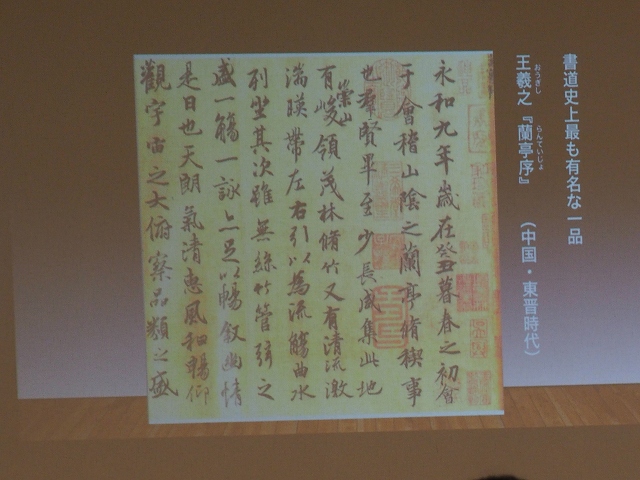 書道史上最も有名な一品
王羲之『蘭亭序』 (中国・東晋時代)
おうぎし らんていじょ
永和九年歳在癸丑暮春之初會
于會稽山陰之蘭亭脩稧事
也羣賢畢至少長咸集此地
有崇山峻領茂林脩竹又有清流激
湍暎帶左右引以為流觴曲水
列坐其次雖無絲竹管弦之
盛一觴一詠亦足以暢叙幽情
是日也天朗氣清惠風和暢仰
觀宇宙之大俯察品類之盛